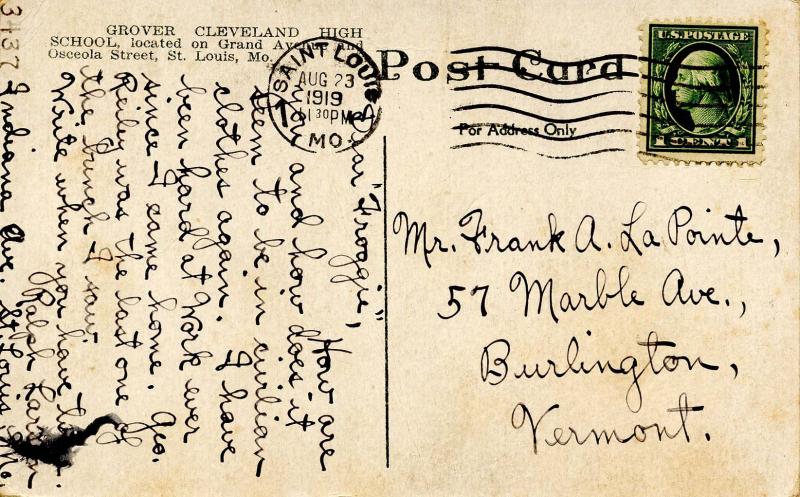 GROVER CLEVELAND HIGH
SCHOOL, located on Grand Avenue and
Osceola Street, St. Louis, Mo.
Post Card
For Address Only
SAINT LOUIS
AUG 23
1919
1 30 PM
MO.
U.S. POSTAGE
1 CENT 1
Mr. Frank A. La Pointe,
57 Marble Ave.,
Burlington,
Vermont.
Dear "Froggie",
How are
you and how does it
seem to be in civilian
clothes again. I have
been hard at work ever
since I came home. Geo.
Reiley was the last one of
the bunch I saw.
Write when you have time.
Ralph
3437 Indiana Ave. St. Louis Mo.